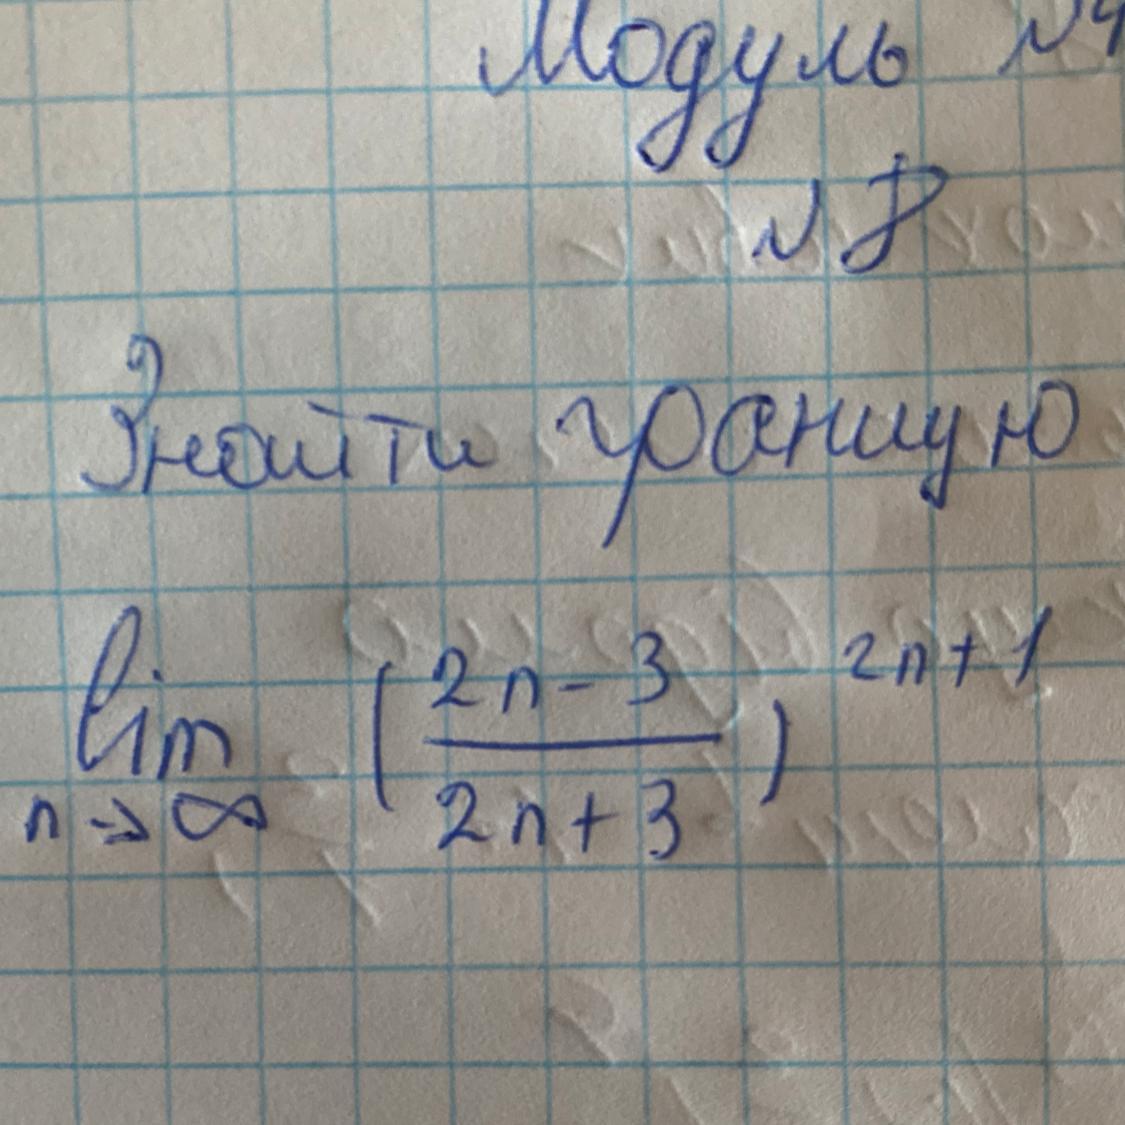 Модуль №4
№8
Знайти границю
lim (2n-3 / 2n+3)^2n+1
n→∞